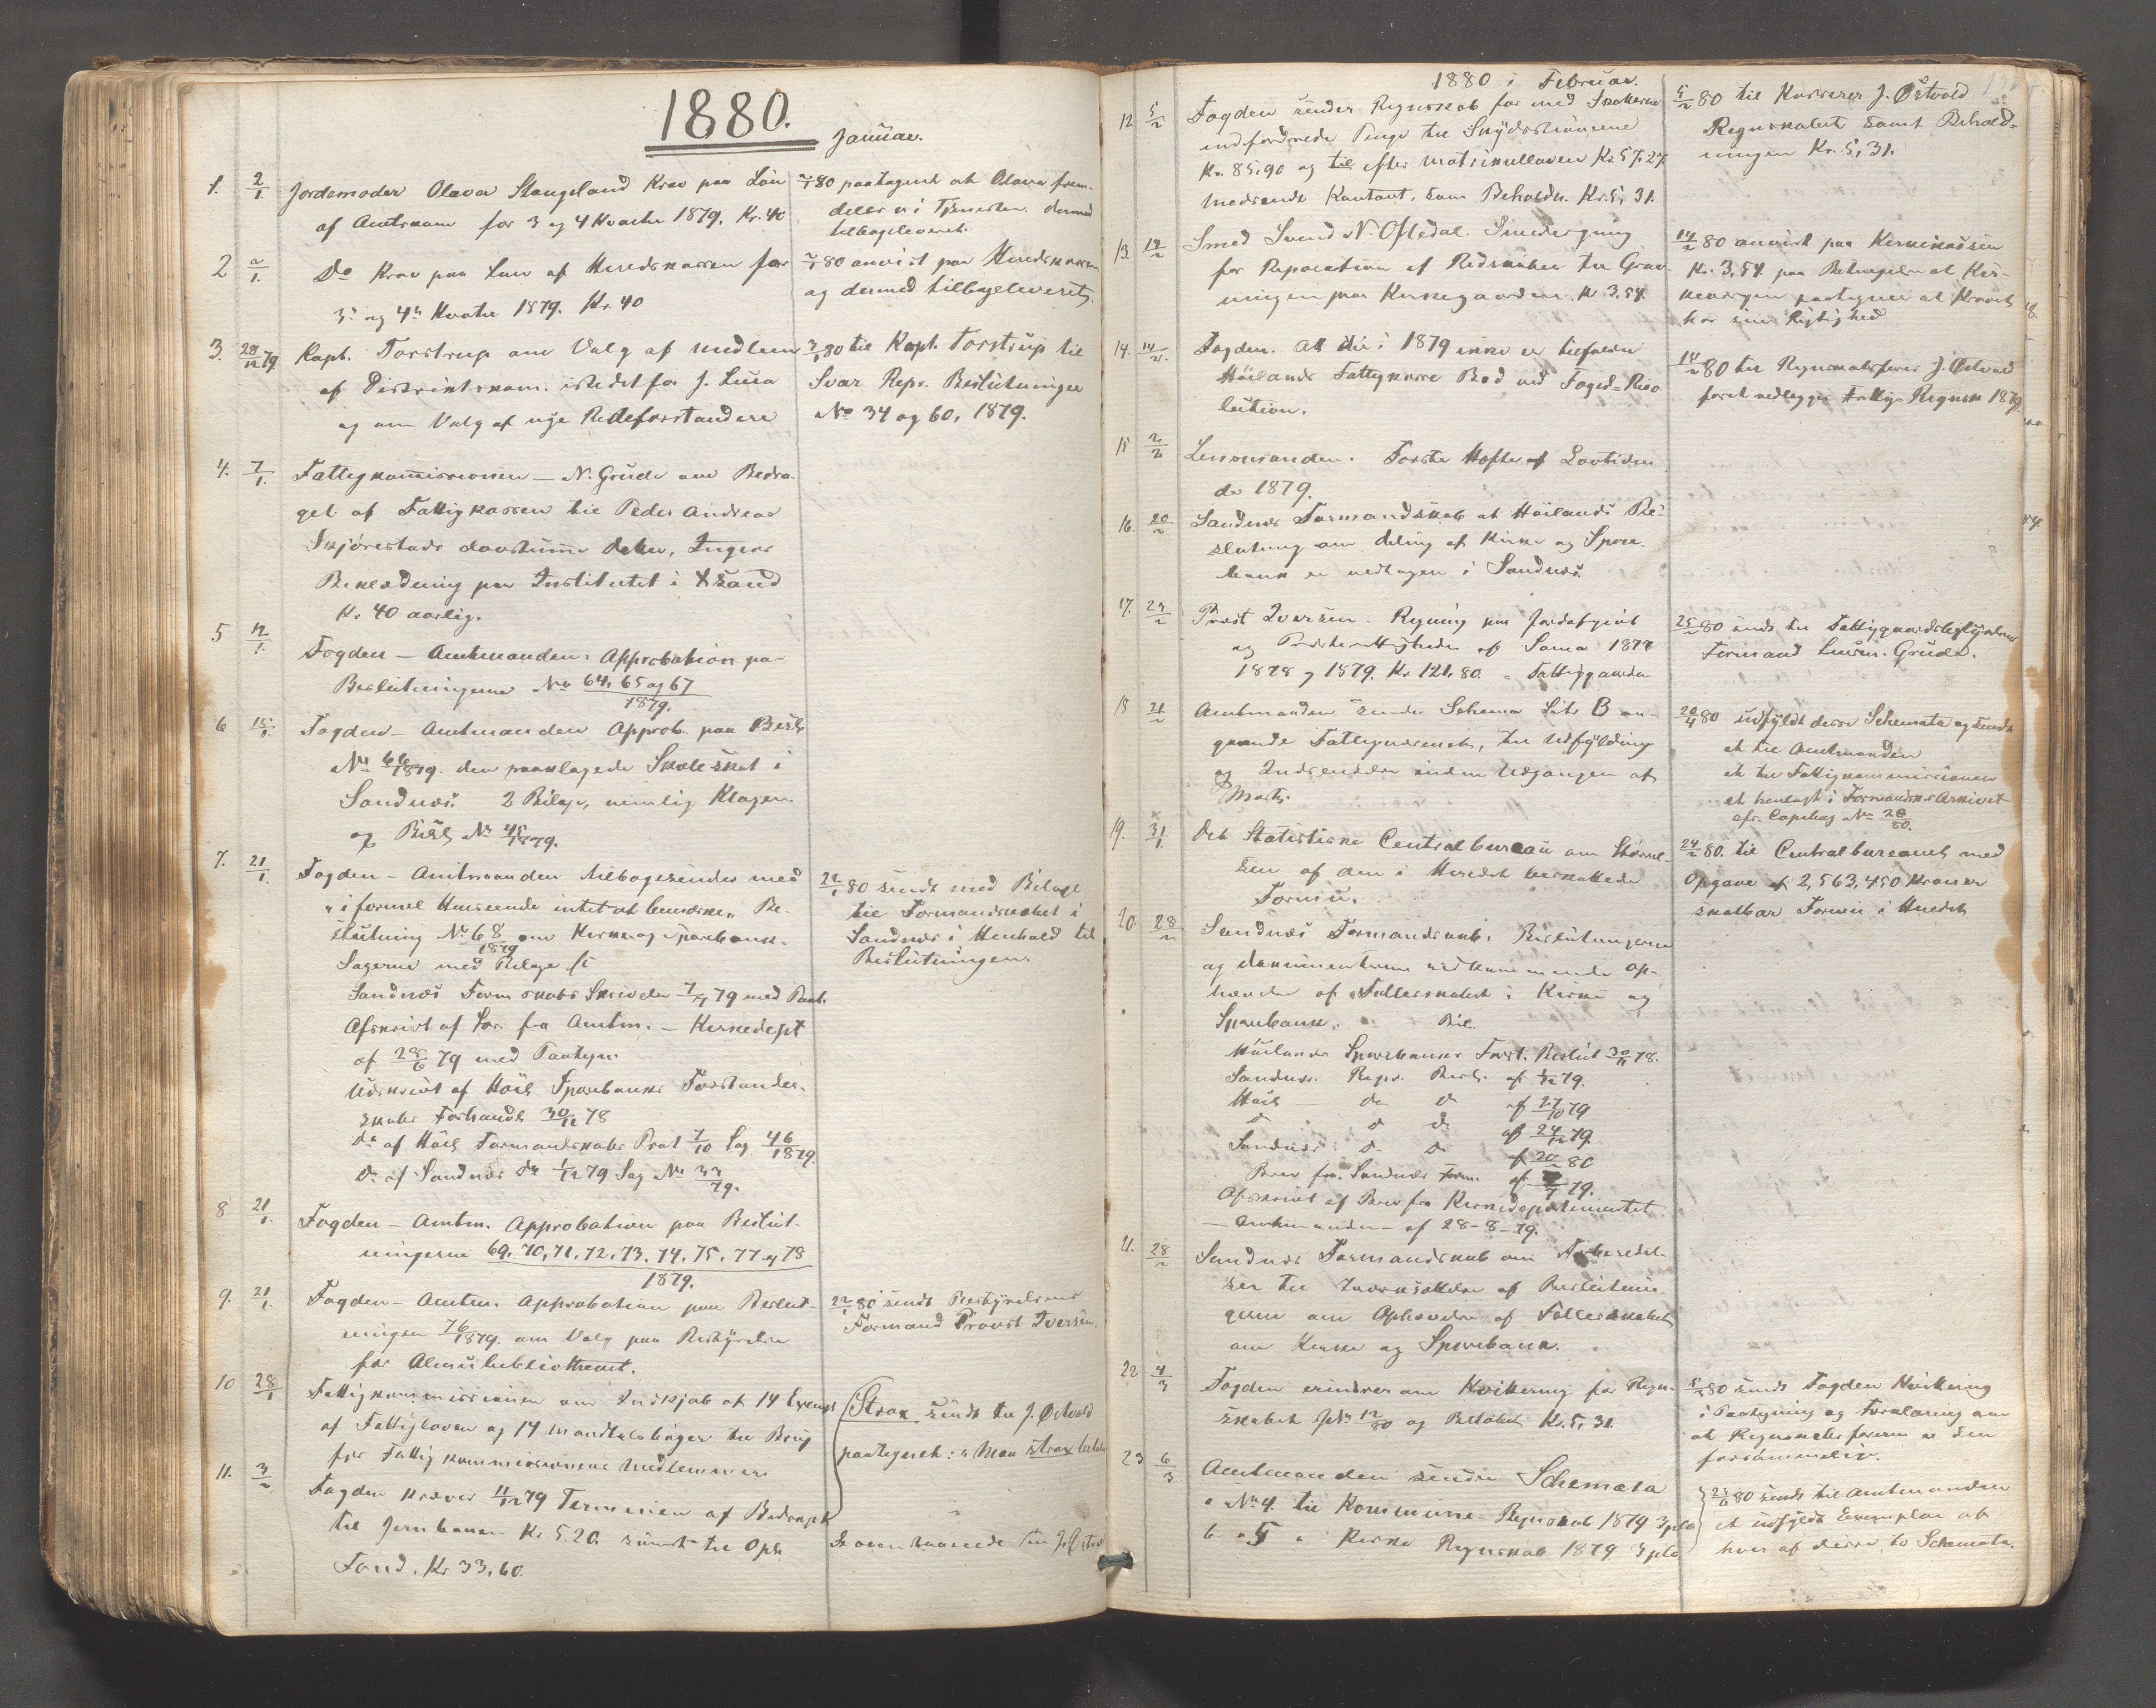 1880.
Januar.
1. 2/1. Jordemoder Olava Stangeland Krav paa Løn
af Amtskom for 3 og 4 Kvartal 1879. Kr. 40
2/1 80 paategnet at Olava frem-
deles er i Tjenesten. dermed
tilbageleveret.
2 2/1. Do Krav paa Løn af Heredskassen for
3die og 4de Kvartal 1879. Kr. 40
2/1 80 anvist paa Heredskassen
og dermed tilbageleveret.
3. 29/12 79. Kapt. Torstrup om Valg af medlem
af Distriktskom. istedetfor J. Lura
og om Valg af nye Rodeforstandere
3/1 80 til Kapt. Torstrup til
Svar Repr. Beslutninger
No 34 og 60, 1879.
4. 7/1. Fattigkommissionen — N. Grude om Bidra-
get af Fattigkassen til Peder Andreas
Skjørestads døvstumme datter, Ingers
Beklædning paa Institutet i Xsand
Kr 40 aarlig.
5 12/1. Fogden — Amtmandens Approbation paa
Beslutningerne No 64, 65 og 67
1879.
6 15/1. Fogden — Amtmanden Approb. paa Besl.
No 66/1879. den paaklagede Skoleskat i
Sandnæs. 2 Bilage, nemlig Klagen
og Besl. No 45/1879.
7. 21/1. Fogden — Amtmanden tilbagesender med
"i formel Henseende intet at bemærke" Be-
slutning No 68/1879 om Kirke og Sparebank-
Sagerne med Bilage
Sandnæs Formskabs Skrivelse 7/ 79 med Paat.
Afskrivt af Skr. fra Amtm. — Kirkedept
af 28/6 79 med Paategn.
Udskrivt af Høil. Sparebanks Forstander-
skabs Forhandl. 30/11 78
do af Høil. Formandskabs Prot 7/10 Sag 46/1879.
Do af Sandnæs do 1/12 79 Sag No 33/79.
22/1 80 sendt med Bilage
til Formandskabet i
Sandnæs i Henhold til
Beslutningen.
8 21/1. Fogden — Amtm. Approbation paa Beslut-
ningerne 69, 70, 71, 72, 73, 74, 75, 77 og 78
1879.
9. 21/1. Fogden — Amtm. Approbation paa Beslut-
ningen 76/1879. om Valg paa Bestyrelse
for Almuebibliotheket.
22/1 80 sendt Bestyrelsens
Formand Provst Iversen.
10 28/1 Fattigkommissionen om Indkjøb af 14 Exempl
af Fattigloven og 14 Mandtalsbøger til Brug
for Fattigkommissionens Medlemmer
Strax sendt til J. Østvold
paategnet: "Maa strax
11. 3/2 Fogden kræver 11/12 79 Terminen af Bidraget
til Jernbanen Kr 5.20. samt til Opl.
Fond. Kr 33,60.
Ligesom ovenstaaende til J. Østvold
1880 i Februar.
12 5/2 Fogden sender Regnskab for med Skatterne
indfordrede Penge til Skydsstationerne
Kr. 85,90 og til efter Matrikulloven Kr. 57,27
medsendt Kontant, som Beholdn. Kr. 5,31.
5/2 80 til Kasserer J. Østvold
Regnskabet samt Behold-
ningen Kr. 5,31.
13. 12/2 Smed Svend N. Oftedal. Smedregning
for Reparation af Redskaber til Grav-
ningen paa Kirkegaarden. Kr 3,54.
14/2 80 anvist paa Kirkekassen
Kr. 3,54. paa Betingelse at Kir-
keværgen paategner at Kravet
har sin Rigtighed
14. 14/2. Fogden. At der i 1879 ikke er tilfalden
Høilands Fattigkasse Bod ved Foged-Reso
lution.
14/2 80 til Regnskabsfører J. Østvold
foret vedlægges Fattig-Regnsk 1879.
15 2/2 Lensmanden. Første Hefte af Lovtiden
de 1879.
16. 20/2 Sandnæs Formandskab at Høilands Be-
slutning om deling af Kirke og Spare-
bank er vedtagen i Sandnæs.
17. 23/2 Provst Iversen. Regning paa Jordafgivt
og Præsterettigheder af Soma 1877
1878 og 1879. Kr 121,80. — Fattiggaarden
25/2 80 sendt til Fattiggaardsbestyrelsens
Formand Lauren. Grude.
18 21/2 Amtmanden sender Schema Litr B an-
gaaende Fattigvæsenet, til Udfylding
og Indsendelse inden Udgangen af
Marts.
20/4 80 udfyldt disse Schemata og sendt
et til Amtmanden
et til Fattigkommissionen
et henlagt i Formandsk. Arkivet
19. 31/1. Det Statistiske Centralbureau om Størrel-
sen af den i Heredet beskattede
Formue.
24/2 80. til Centralbureauet med
Opgave af 2,563,450 Kroner
skatbar Formue i Heredet
20. 28/2 Sandnæs Formandskab. Beslutningerne
og dokumenterne vedkommende Op-
hævelse af Fællesskabet i Kirke og
Sparebank. Bil.
Høilands Sparebanks Forst. Beslut 30/11 78.
Sandnæs. Repr. Besl. af 1/12 79.
Høil do do af 27/10 79
do do do af 24/ 79.
Sandnæs do do af 20/2 80
Brev fra Sandnæs Form. af 79.
Afskrivt af Brev fra Kirkedepartementet
— Amtmanden — af 28-8-79.
21. 28/2 Sandnæs Formandskab om Forberedel-
ser til Iværksættelse af Beslutnin-
gerne om Ophævelse af Fællesskabet
om Kirke og Sparebank.
22 4/3 Fogden erindrer om Kvittering for Regn-
skabet JNo 12/80 og Beløbet Kr. 5,31.
5/3 80 sendt Fogden Kvittering
i Paategning og Forklaring om
at Regnskabsføreren er den
forsømmelige.
23 6/3 Amtmanden sender Schemata
a No 4. til Kommune Regnskab 1879 3pla
b a 5 " Kirke Regnskab 1879 3pla
80 sendt til Amtmanden
et udfyldt Exemplar af
hver af disse to Schemata.